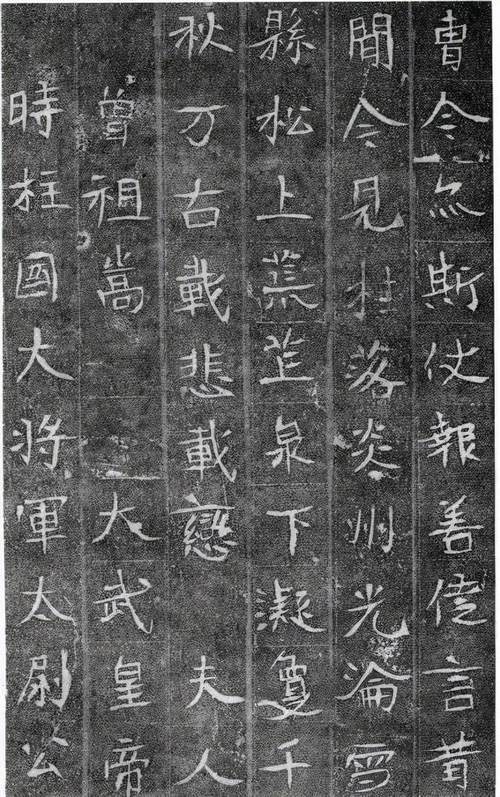 曹令尒斯仗報善徒言昔
聞今見桂落炎州光淪雪
縣松上荒芷泉下凝敻千
秋万古載悲載戀 夫人
曾祖嵩 大武皇帝
時柱國大将軍太尉公